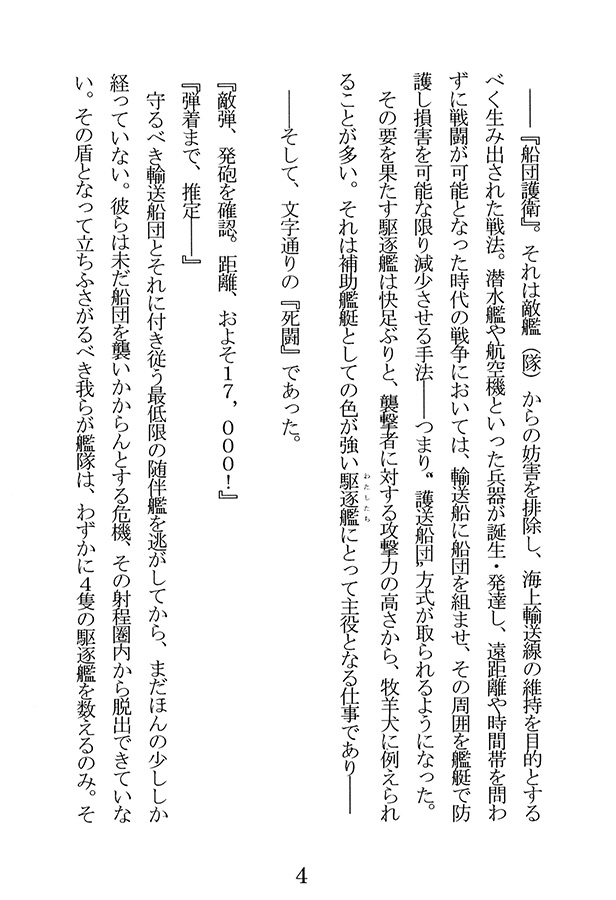 ――『船団護衛』。それは敵艦（隊）からの妨害を排除し、海上輸送線の維持を目的とする
べく生み出された戦法。潜水艦や航空機といった兵器が誕生・発達し、遠距離や時間帯を問わ
ずに戦闘が可能となった時代の戦争においては、輸送船に船団を組ませ、その周囲を艦艇で防
護し損害を可能な限り減少させる手法――つまり〝護送船団〟方式が取られるようになった。
その要を果たす駆逐艦は快足ぶりと、襲撃者に対する攻撃力の高さから、牧羊犬に例えられ
ることが多い。それは補助艦艇としての色が強い駆逐艦にとって主役となる仕事であり――
わたしたち
――そして、文字通りの『死闘』であった。
『敵弾、発砲を確認。距離、およそ１７，０００！』
『弾着まで、推定――』
守るべき輸送船団とそれに付き従う最低限の随伴艦を逃がしてから、まだほんの少ししか
経っていない。彼らは未だ船団を襲いかからんとする危機、その射程圏内から脱出できていな
い。その盾となって立ちふさがるべき我らが艦隊は、わずかに４隻の駆逐艦を数えるのみ。そ
4